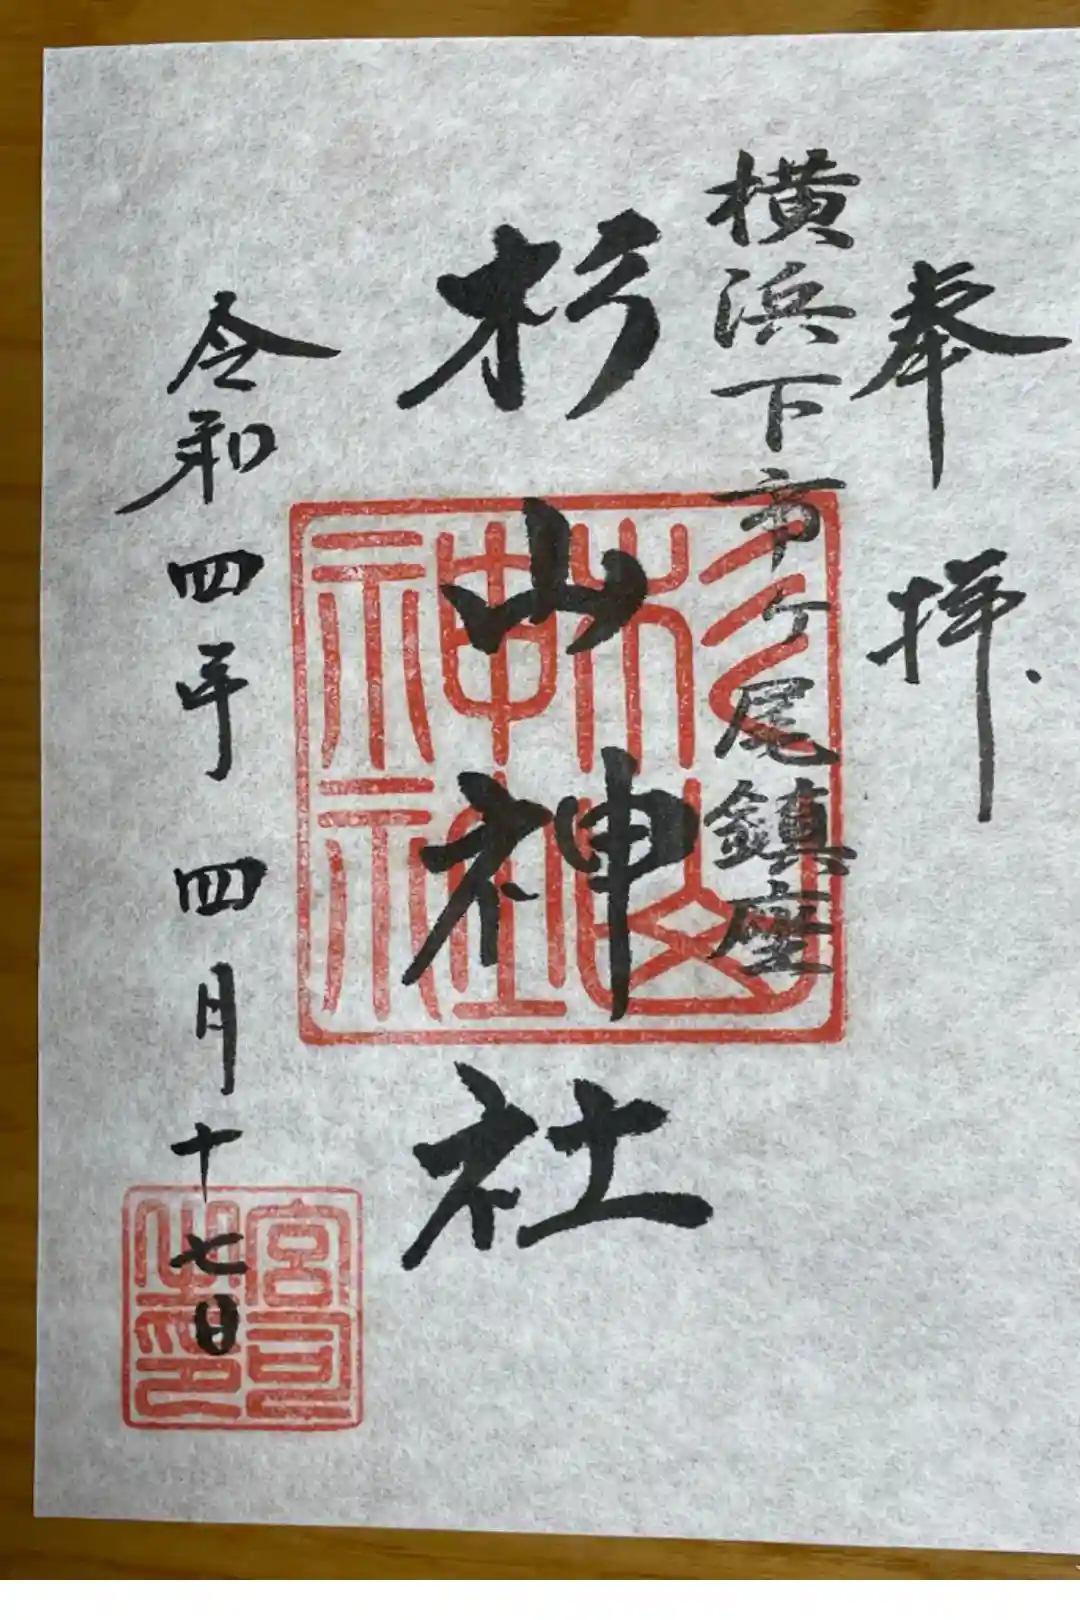 奉拝
横浜下市ヶ尾鎮座
杉山神社
杉山神社
令和四年四月十七日
宮司之印